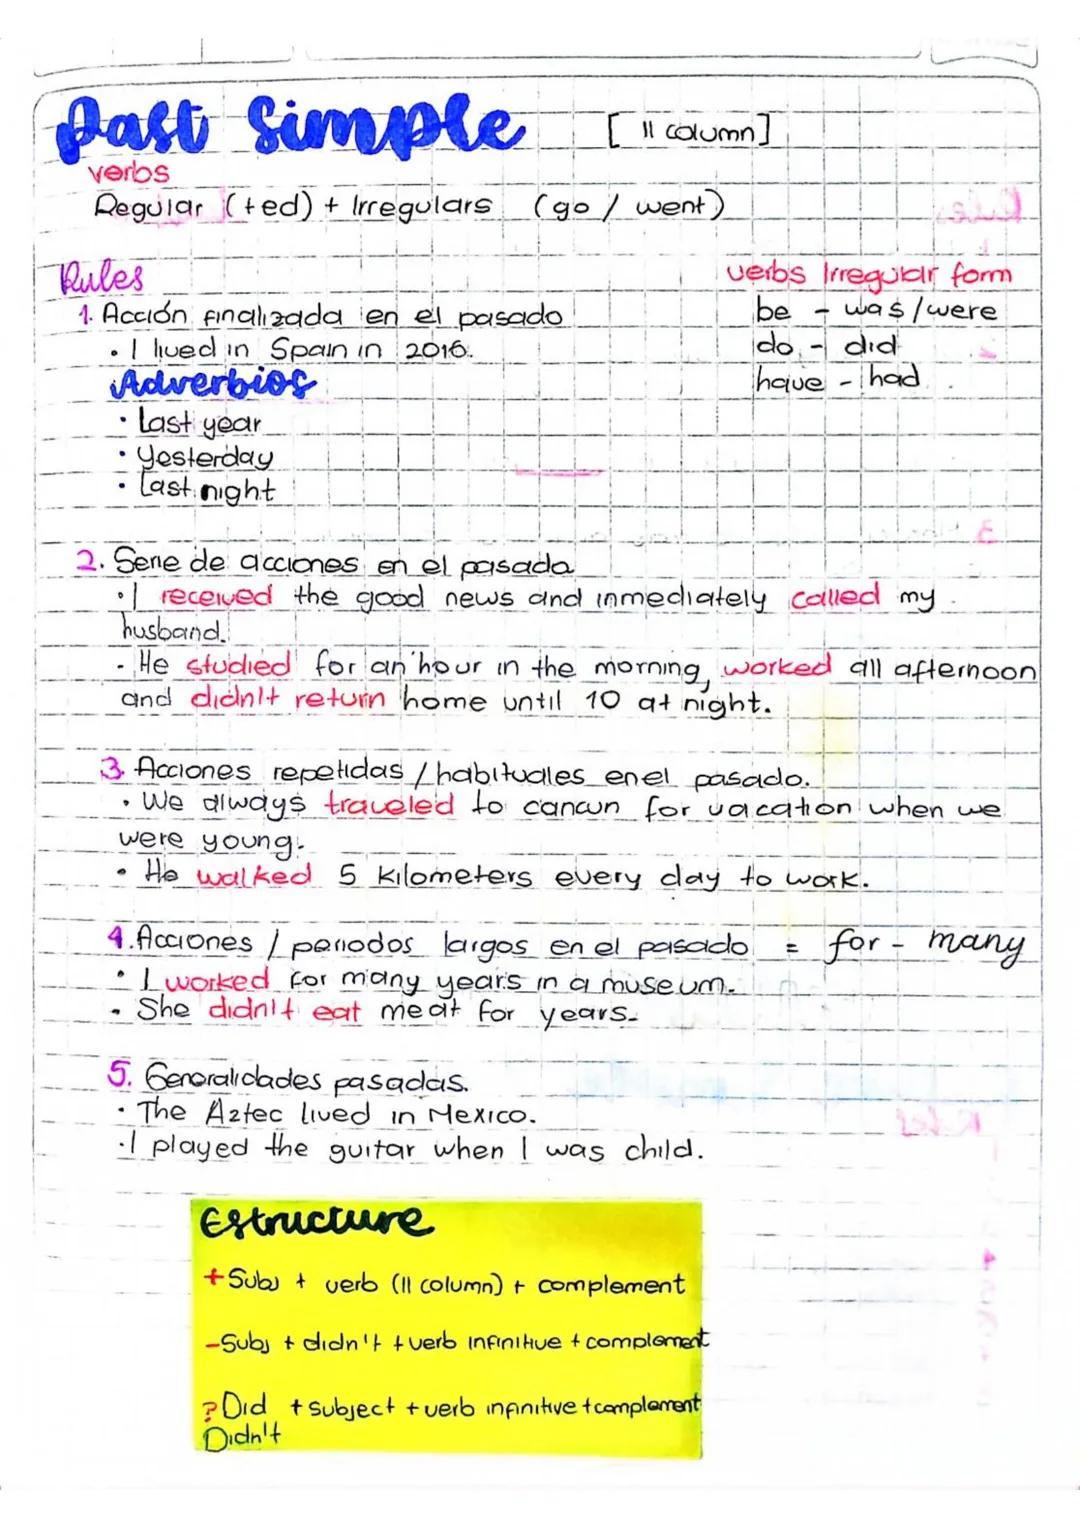 Past Simple [II column]
verbs
Regular (+ed) + Irregulars (go / went)
Rules
1. Acción finalizada en el pasado
• I lived in Spain in 2016.
Adverbios
• Last year
• Yesterday
• Last night
verbs Irregular form
be - was/were
do - did
have - had
2. Serie de acciones en el pasada
• I received the good news and inmediately called my
husband.
- He studied for an hour in the morning, worked all afternoon
and didn't return home until 10 at night.
3. Acciones repetidas / habituales en el pasado.
• We always traveled to cancun for vacation when we
were young.
• He walked 5 kilometers every day to work.
4. Acciones / periodos largos en el pasado = for - many
• I worked for many years in a museum.
• She didn't eat meat for years.
5. Generalidades pasadas.
• The Aztec lived in Mexico.
• I played the guitar when I was child.
Estructure
+ Subj + verb (II column) + complement
- Subj + didn't + verb infinitive + complement
? Did + subject + verb infinitive + complement
Didn't